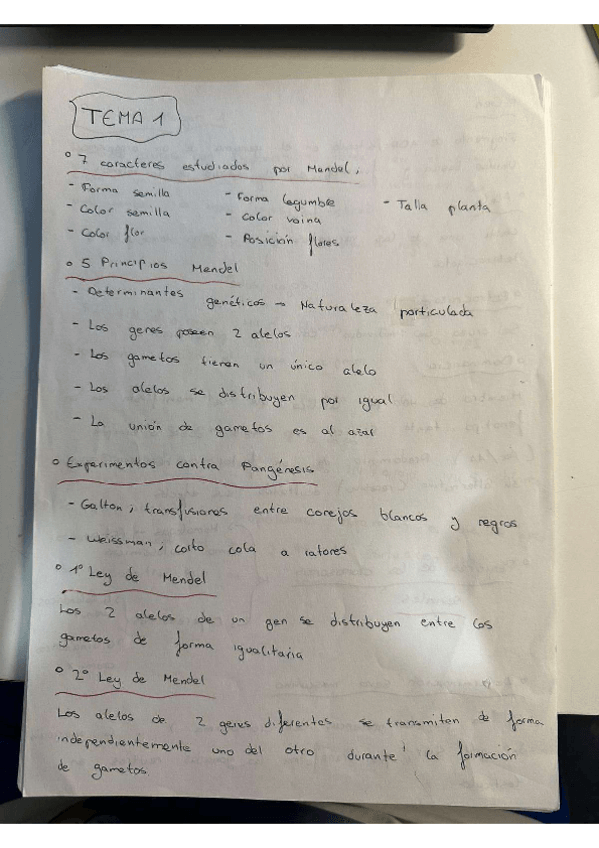 TEMA 1
° 7 caracteres estudiados por Mendel.
- Forma semilla - Forma legumbre - Talla planta
- Color semilla - Color vaina
- Color flor - Posición flores
° 5 Principios Mendel
- Determinantes genéticos → Naturaleza particulada
- Los genes poseen 2 alelos
- Los gametos tienen un único alelo
- Los alelos se distribuyen por igual
- La unión de gametos es al azar
° Experimentos contra Pangénesis
- Galton, transfusiones entre conejos blancos y negros
- Weissman, corto cola a ratones
° 1º Ley de Mendel
Los 2 alelos de un gen se distribuyen entre los
gametos de forma igualitaria
° 2º Ley de Mendel
Los alelos de 2 genes diferentes se transmiten de forma
independientemente uno del otro durante la formación
de gametos